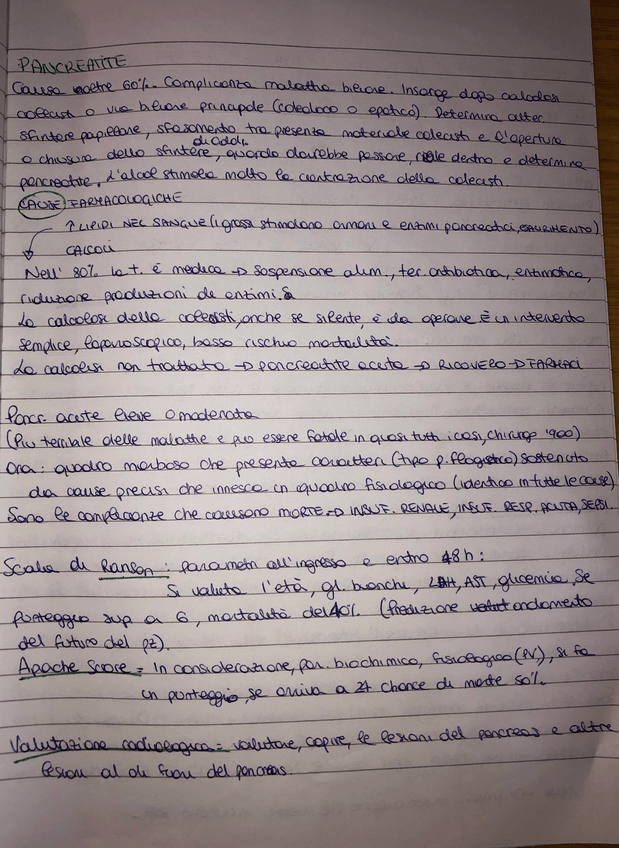 PANCREATITE
Causa oltre 60%. Complicanza malattia biliare. Insorge dopo calcolosi
colecisti o via biliare principale (coledoco o epatico). Determina alter.
sfintere papillare, sfasamento tra presenza materiale colecisti e l'apertura
o chiusura dello sfintere, quando dovrebbe passare, risale dentro e determina
di oddi
pancreatite. L'alcol stimola molto la contrazione della colecisti.
CAUSE FARMACOLOGICHE
↑ LIPIDI NEL SANGUE (I grassi stimolano ormoni e enzimi pancreatici, ESAURIMENTO)
CALCOLI
Nell' 80% la t. è medica → sospensione alim., ter. antibiotica, enzimatica,
riduzione produzioni di enzimi.
La calcolosi della colecisti, anche se silente, è da operare. È un intervento
semplice, laparoscopico, basso rischio mortalità.
La calcolosi non trattata → pancreatite acuta → RICOVERO → FARMACI
Pancr. acuta lieve o moderata
(Più terribile delle malattie e può essere fatale in quasi tutti i casi, chirurgo '900)
Ora: quadro morboso che presenta caratteri (tipo p. flogistico) sostenuto
da cause precise che innesca un quadro fisiologico (identico in tutte le cause).
Sono le complicanze che causano MORTE → INSUF. RENALE, INSUF. RESP. ACUTA, SEPSI.
Scala di Ranson: parametri all'ingresso e entro 48h:
Si valuta l'età, gl. bianchi, LDH, AST, glicemia, se
punteggio sup a 6, mortalità del 40%. (Predizione andamento
del futuro del pz).
Apache Score = In considerazione, par. biochimico, fisiologico (PV), si fa
un punteggio, se arriva a 24 chance di morte 50%.
Valutazione radiologica = valutare, capire, le lesioni del pancreas e altre
lesioni al di fuori del pancreas.